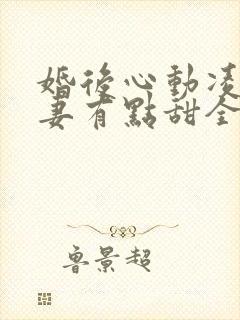 婚後心動凌
妻有點甜全
魯景超